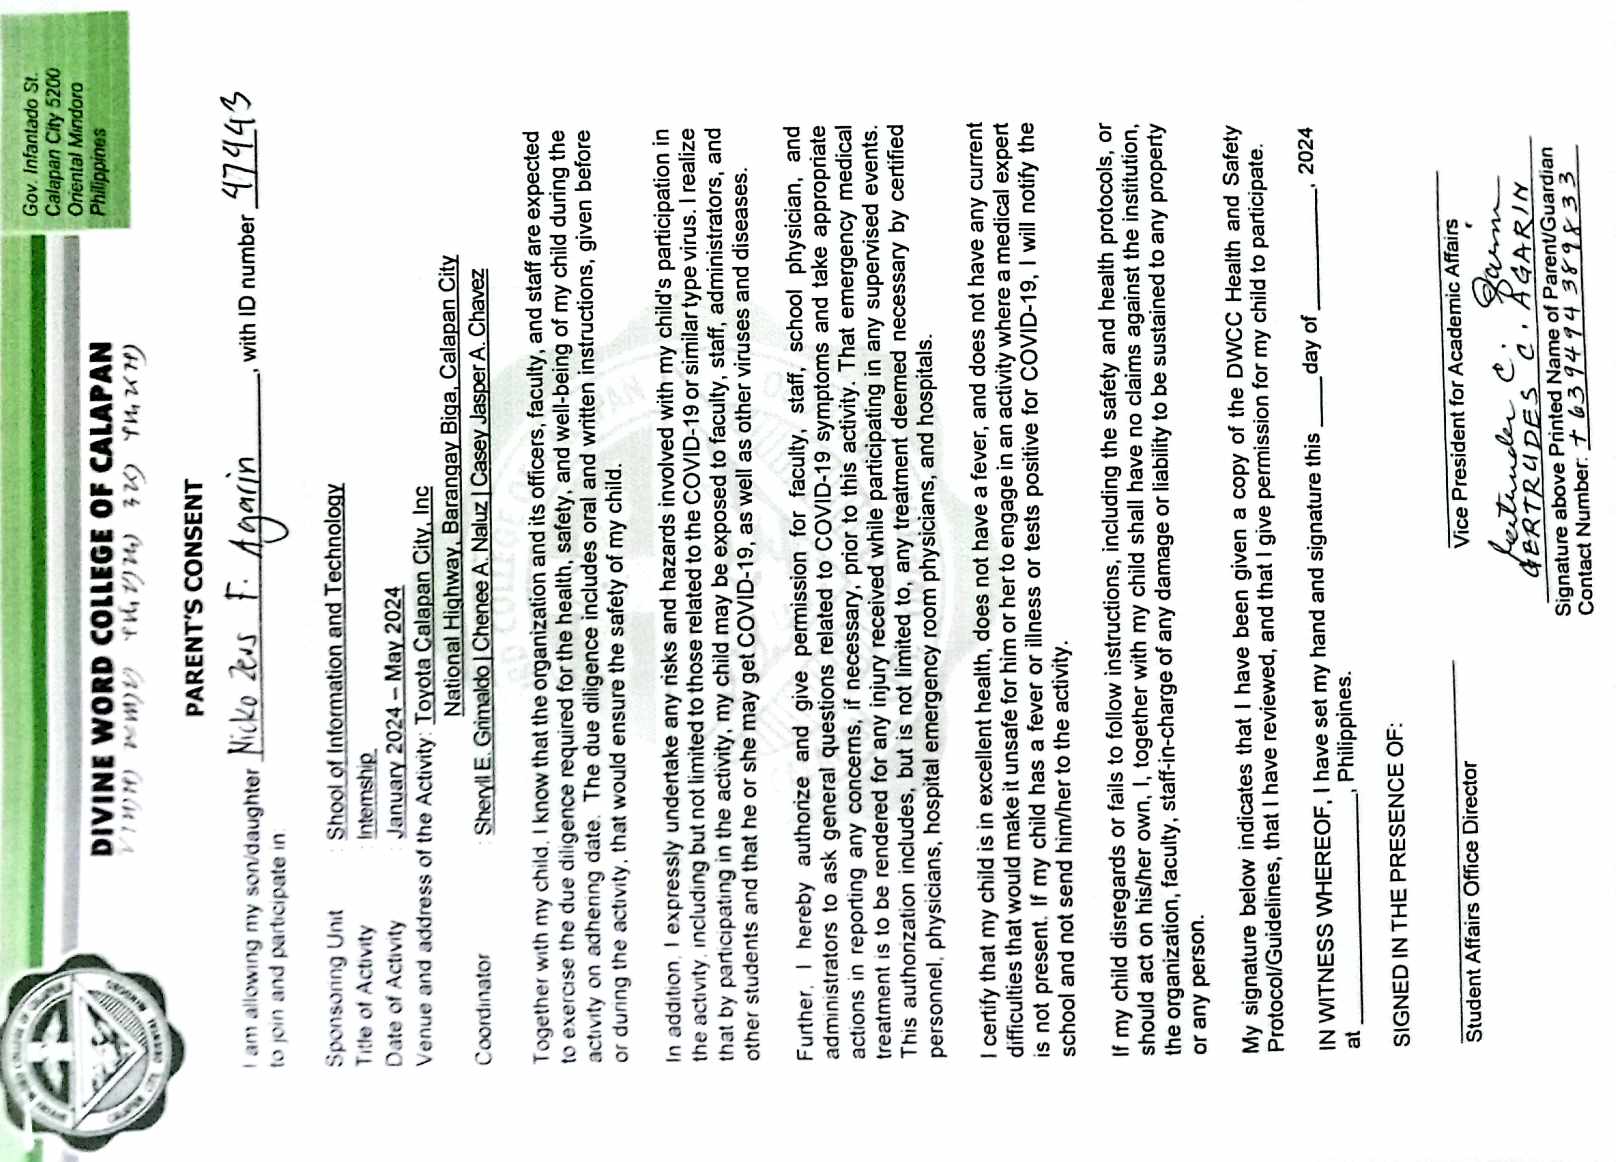 Gov. Infantado St.
Calapan City 5200
Oriental Mindoro
Philippines
DIVINE WORD COLLEGE OF CALAPAN
PARENT'S CONSENT
I am allowing my son/daughter Nicko Zeus F. Agarin, with ID number 47443
to join and participate in:
Sponsoring Unit : Shool of Information and Technology
Title of Activity : Internship
Date of Activity : January 2024 – May 2024
Venue and address of the Activity: Toyota Calapan City, Inc
National Highway, Barangay Biga, Calapan City
Coordinator : Sheryll E. Grimaldo | Chenee A. Naluz | Casey Jasper A. Chavez
Together with my child, I know that the organization and its officers, faculty, and staff are expected
to exercise the due diligence required for the health, safety, and well-being of my child during the
activity on adhering date. The due diligence includes oral and written instructions, given before
or during the activity, that would ensure the safety of my child.
In addition, I expressly undertake any risks and hazards involved with my child's participation in
the activity, including but not limited to those related to the COVID-19 or similar type virus. I realize
that by participating in the activity, my child may be exposed to faculty, staff, administrators, and
other students and that he or she may get COVID-19, as well as other viruses and diseases.
Further, I hereby authorize and give permission for faculty, staff, school physician, and
administrators to ask general questions related to COVID-19 symptoms and take appropriate
actions in reporting any concerns, if necessary, prior to this activity. That emergency medical
treatment is to be rendered for any injury received while participating in any supervised events.
This authorization includes, but is not limited to, any treatment deemed necessary by certified
personnel, physicians, hospital emergency room physicians, and hospitals.
I certify that my child is in excellent health, does not have a fever, and does not have any current
difficulties that would make it unsafe for him or her to engage in an activity where a medical expert
is not present. If my child has a fever or illness or tests positive for COVID-19, I will notify the
school and not send him/her to the activity.
If my child disregards or fails to follow instructions, including the safety and health protocols, or
should act on his/her own, I, together with my child shall have no claims against the institution,
the organization, faculty, staff-in-charge of any damage or liability to be sustained to any property
or any person.
My signature below indicates that I have been given a copy of the DWCC Health and Safety
Protocol/Guidelines, that I have reviewed, and that I give permission for my child to participate.
IN WITNESS WHEREOF, I have set my hand and signature this ____day of __________, 2024
at ____________________, Philippines.
SIGNED IN THE PRESENCE OF:
Student Affairs Office Director
Vice President for Academic Affairs
GERTRUDES C. AGARIN
Signature above Printed Name of Parent/Guardian
Contact Number: +639494389833